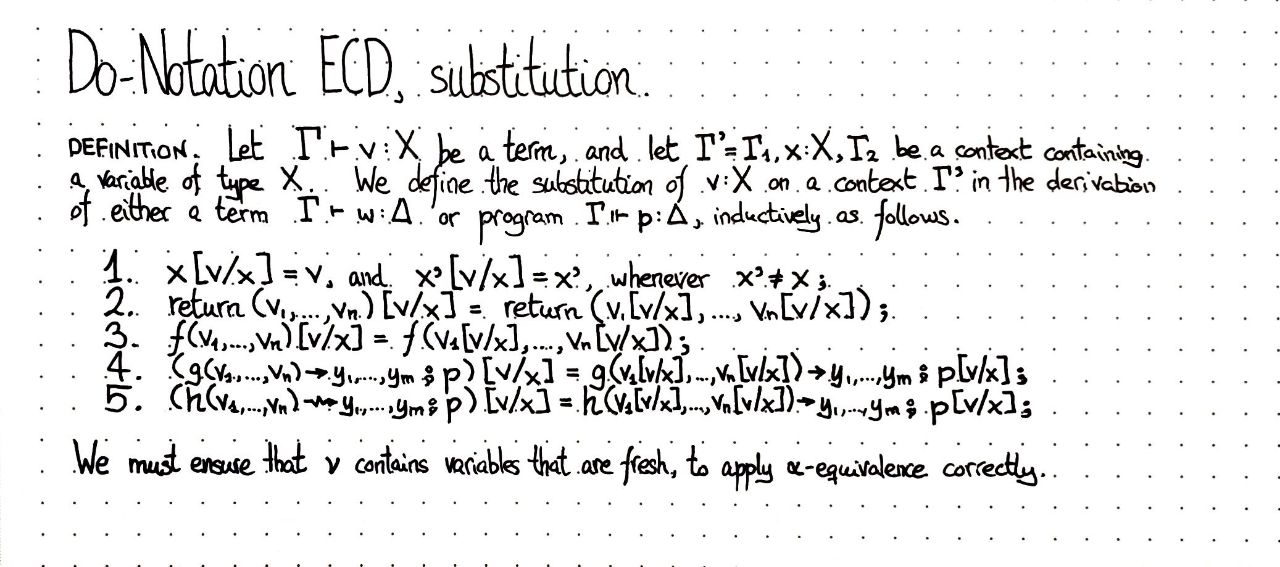 Do-Notation ECD, substitution.
DEFINITION. Let Γ ⊢ v : X be a term, and let Γ' = Γ₁, x:X, Γ₂ be a context containing
a variable of type X. We define the substitution of v:X on a context Γ' in the derivation
of either a term Γ ⊢ w : Δ or program Γ ⊩ p : Δ, inductively as follows.
1. x[v/x] = v, and x'[v/x] = x', whenever x' ≠ x;
2. return(v₁,...,vₙ)[v/x] = return(v₁[v/x],..., vₙ[v/x]);
3. f(v₁,...,vₙ)[v/x] = f(v₁[v/x],..., vₙ[v/x]);
4. (g(v₁,...,vₙ) → y₁,...,yₘ ⨾ p)[v/x] = g(v₁[v/x],...,vₙ[v/x]) → y₁,...,yₘ ⨾ p[v/x];
5. (h(v₁,...,vₙ) ⇝ y₁,...,yₘ ⨾ p)[v/x] = h(v₁[v/x],...,vₙ[v/x]) → y₁,...,yₘ ⨾ p[v/x];
We must ensure that v contains variables that are fresh, to apply α-equivalence correctly.